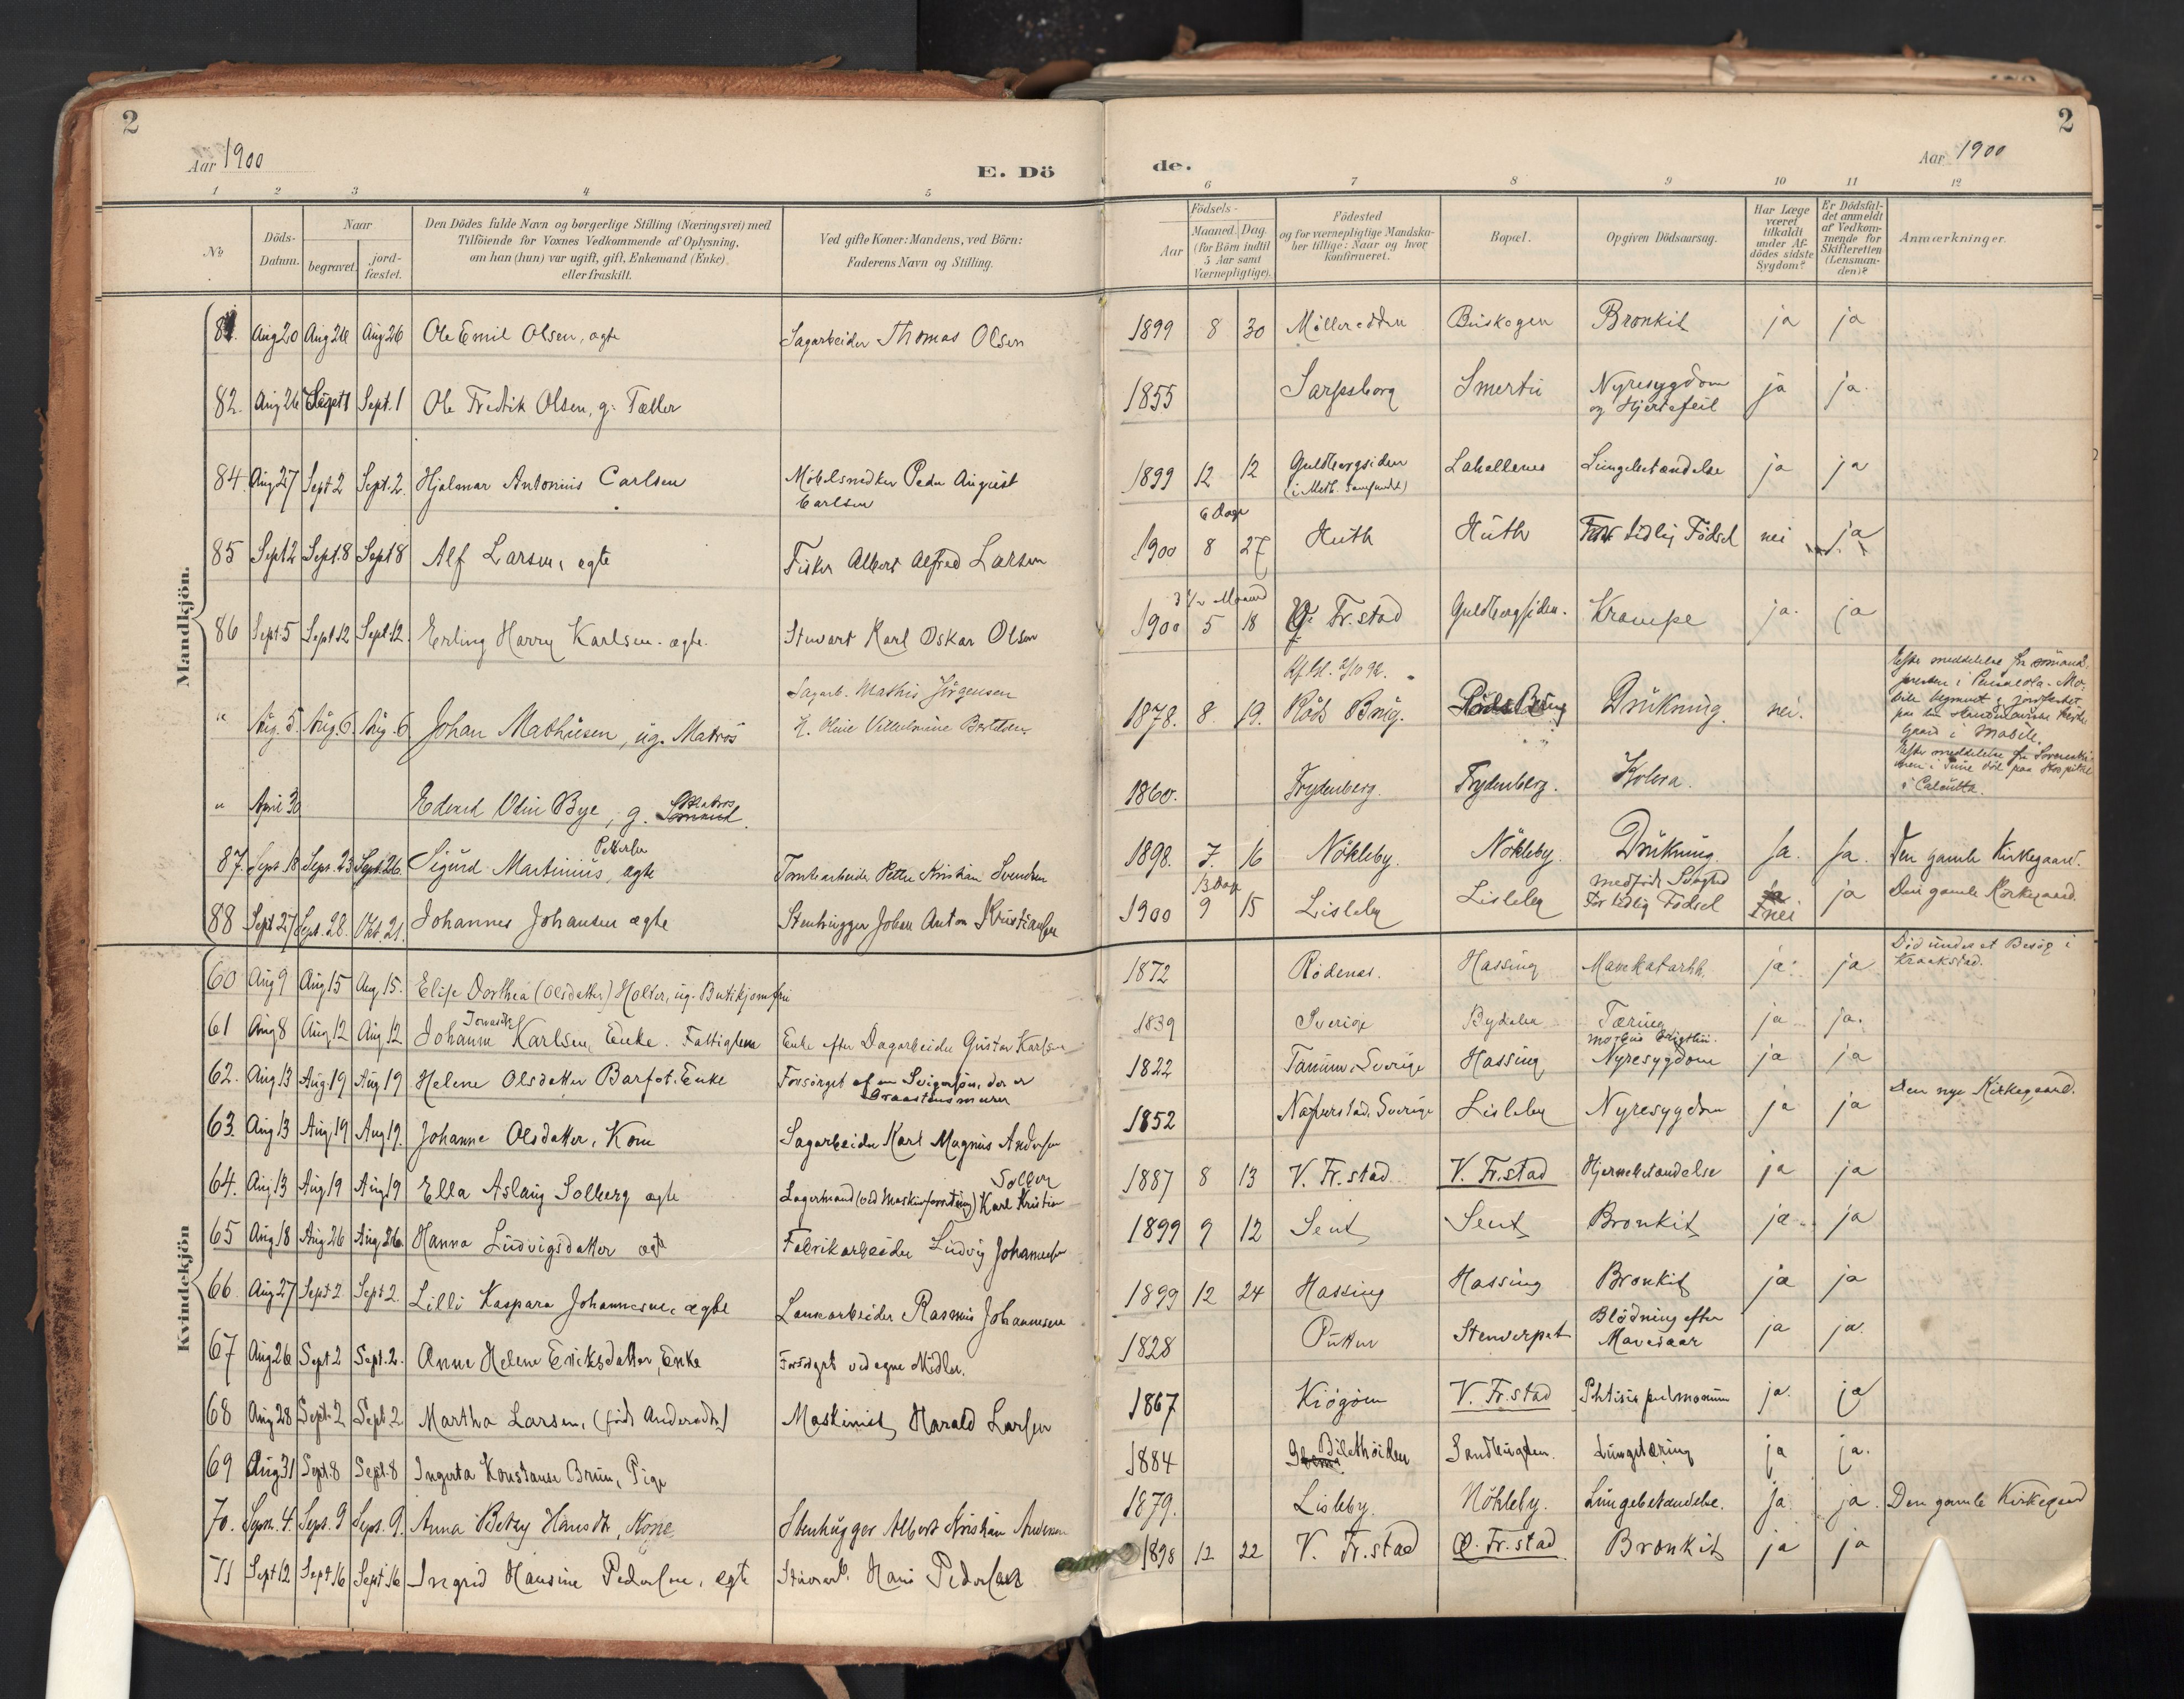 2
Aar 1900
E. Dö
1 2 3 4 5
No
Döds-Datum.
Naar
begravet.
jord-fæstet.
Den Dödes fulde Navn og borgerlige Stilling (Næringsvei) med
Tilföiende for Voxnes Vedkommende af Oplysning,
om han (hun) var ugift, gift, Enkemand (Enke)
eller fraskilt.
Ved gifte Koner: Mandens, ved Börn:
Faderens Navn og Stilling.
Mandkjön.
81. Aug 20 Aug 26 Aug 26 Ole Emil Olsen, ægte Sagarbeider Thomas Olsen
82. Aug 26 Sept 1 Sept. 1 Ole Fredrik Olsen, g. Tæller
84. Aug 27 Sept 2 Sept. 2. Hjalmar Antonius Carlsen Möbelsnedker Peder August
Carlsen
85 Sept 2 Sept. 8 Sept 8 Alf Larsen, ægte Fisker Albert Alfred Larsen
86 Sept. 5 Sept 12 Sept. 12. Erling Harry Karlsen. ægte. Stuvart Karl Oskar Olsen
Sagarb. Mathis Jörgensen
" Aug. 5. Aug. 6. Aug. 6 Johan Mathisen, ug. Matros H. Oline Villelmine
" April 30 Edvard Odin Bye, g. Matros
Pettersen
87. Sept. 18 Sept. 23 Sept. 26. Sigurd Martinius, ægte Tomtearbeider Petter Kristian Svendsen
88 Sept 27 Sept. 28. Okt. 21. Johannes Johansen ægte Stenhugger Johan Anton Kristiansen
Kvindekjön
60 Aug 9 Aug 15 Aug 15. Elise Dorthea (Olsdatter) Holter, ug. Butikjomfru
61 Aug 8 Aug 12 Aug 12 Johanne Karlsen, Enke. Fattiglem Enke efter Dagarbeider Gustav Karlsen
62. Aug 13 Aug. 19 Aug 19 Helene Olsdatter Barfot. Enke Forsörget af en Svigersön, der er
Graastensmurer
63. Aug 13 Aug. 19 Aug 19. Johanne Olsdatter, Kone Sagarbeider Karl Magnus Andersen
64. Aug. 13 Aug 19 Aug 19 Ella Aslaug Solberg ægte Lagermand (ved Maskinforretning) Karl Kristian
Solberg
65 Aug 18 Aug 26 Aug. 26. Hanna Ludvigsdatter ægte Fabrikarbeider Ludvig Johannesen
66 Aug 27 Sept 2 Sept 2. Lilli Kaspara Johannesen, ægte Lensearbeider Rasmus Johannesen
67 Aug 26 Sept 2 Sept. 2. Anne Helene Eriksdatter, Enke Forsörget ved egne Midler.
68 Aug 28 Sept. 2 Sept 2 Martha Larsen, (född Andersdtr) Maskinist Harald Larsen
69 Aug 31 Sept. 8 Sept. 8 Ingerta Konstanse Brun, Pige
70. Sept. 4. Sept. 9 Sept. 9. Anna Betzy Hansdtr, Kone, Stenhugger Albert Kristian Andersen
71 Sept 12 Sept 16 Sept 16 Ingrid Hansine Pedersen, ægte Stuvarb. Hans Pedersen
2
de.
Aar 1900
6 7 8 9 10 11 12
Födsels-
Aar
Maaned. Dag.
(for Börn indtil
5 Aar samt
Værnepligtige).
Födested
og for værnepligtige Mandska-
ber tillige: Naar og hvor
konfirmeret.
Bopæl.
Opgiven Dödsaarsag.
Har Læge
været
tilkaldt
under Af-
dödes sidste
Sygdom?
Er Dödsfal-
det anmeldt
af Vedkom-
mende for
Skifteretten
(Lensman-
den)?
Anmærkninger.
1899 8 30 Möllerodden Buskogen Bronkit ja ja
1855 Sarpsborg Smertu Nyresygdom
og Hjertefeil ja ja.
1899 12 12 Guldbergsiden
(i Meth. Samfundet) Lahellenes Lungebetændelse ja ja
6 Dage
1900 8 27 Huth Huth For tidlig Födsel nei ja
3 1/2 Maaned
1900 5 18 Fr. stad Guldbergsiden. Krampe ja. ja
1878. 8. 19. Röds Brug. Röds Brug Drukning. nei.
Efter meddelelse fra sömands-
presten i Pensacola-Mo-
bile begravet og jordfæstet
paa den Skandinaviske Kirke-
gaard i Mobile.
1860. Frydenberg. Frydenberg. Kolera.
Efter meddelelse fra
död paa Hospitalet
i Calcutta.
1898. 7. 16 Nökleby. Nökleby. Drukning. Ja. Ja. Den gamle Kirkegaard.
13 Dage
1900 9 15 Lisleby Lisleby medfödt Svaghed
For tidlig Födsel nei ja Den gamle Kirkegaard.
1872 Rödenes. Hassing Mavekatarrh. ja. ja Död under et Besög i
Kraakstad.
1839 Sverige Tæring ja ja.
1822 Tanum, Sverige Hassing
Nyresygdom ja ja
1852 Naverstad, Sverige Lisleby Nyresygdom ja ja Den nye Kirkegaard.
1887 8 13 V. Fr. stad V. Fr. stad Hjernebetændelse ja ja
1899 9 12 Seut Seut Bronkit ja ja
1899 12 24 Hassing Hassing Bronkit ja ja
1828 Stenverpet Blödning efter
Mavesaar ja ja.
1867 Kjögöen V. Fr. stad Phtisis pulmonum ja. ja
1884 Lungetæring ja ja.
1879. Lisleby. Nökleby. Lungebetændelse. Ja. ja. Den gamle Kirkegaard
1898 12 22 V. Fr. stad Ö. Fr. stad Bronkit ja ja